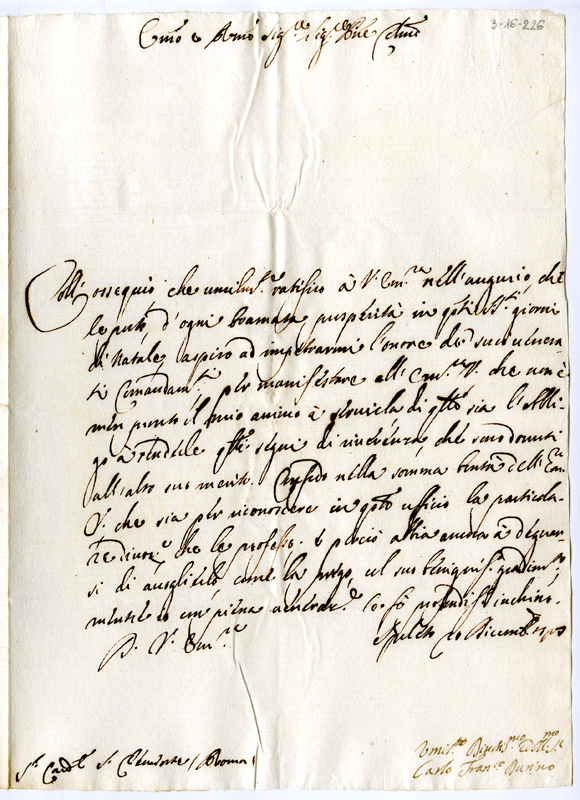 3-16-226
Em̃o e Rmõ Sig.re Sig.re Pñe Colmõ
Coll'ossequio che umilm.te ratifico à V. Em.za nell'augurio, che
le porto d'ogni bramata prosperità in q̃ti SS.ti giorni
di Natale aspiro ad impetrarmi l'onore de' suoi venera-
ti Comandam.ti per manifestare all' Em.za V. che non è
men pronto il mio animo à servirla di q̃llo sia l'obli-
go à renderle q̃sti segni di riverenza, che sono dovuti
all'alto suo merito. Confido nella somma bontà dell'Em.za
V. che sia per riconoscere in q̃sto ufficio la particola-
re divoz.e che le professo, e perciò abbia ancora à degnar-
si di accoglierlo, come la prego, col suo benignis.o gradim.to
mentre io con piena veneraz.e Le fò profondiss.o inchino.
D. V. Em.za
Spoleto 20 Dicemb.e
S.r Card.l S. Clemente (Roma)
Umil.mo Divot.mo ed Obl.mo S.re
Carlo Fran.co Durino